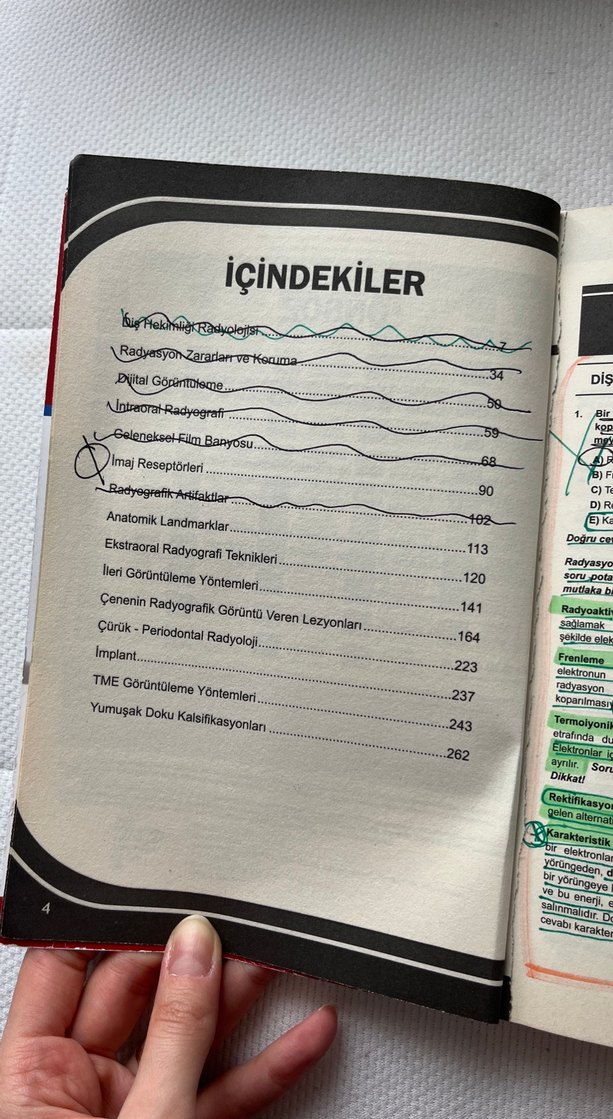 İÇİNDEKİLER
Diş Hekimliği Radyolojisi ........................ 7
Radyasyon Zararları ve Koruma ........................ 34
Dijital Görüntüleme ........................ 50
İntraoral Radyografi ........................ 59
Geleneksel Film Banyosu ........................ 68
İmaj Reseptörleri ........................ 90
Radyografik Artifaktlar ........................ 102
Anatomik Landmarklar ........................ 113
Ekstraoral Radyografi Teknikleri ........................ 120
İleri Görüntüleme Yöntemleri ........................ 141
Çenenin Radyografik Görüntü Veren Lezyonları ........................ 164
Çürük - Periodontal Radyoloji ........................ 223
İmplant ........................ 237
TME Görüntüleme Yöntemleri ........................ 243
Yumuşak Doku Kalsifikasyonları ........................ 262
4
DİŞ
1. Bir
A)
B)
C)
D)
E)
Doğru
soru
mutlaka
sağlamak
şekilde
Frenleme
elektronun
radyasyon
etrafında
Elektronlar
ayrılır.
Dikkat!
gelen
Karakteristik
bir
yörüngeden,
bir yörüngeye
ve bu enerji,
salınmalıdır.
cevabı